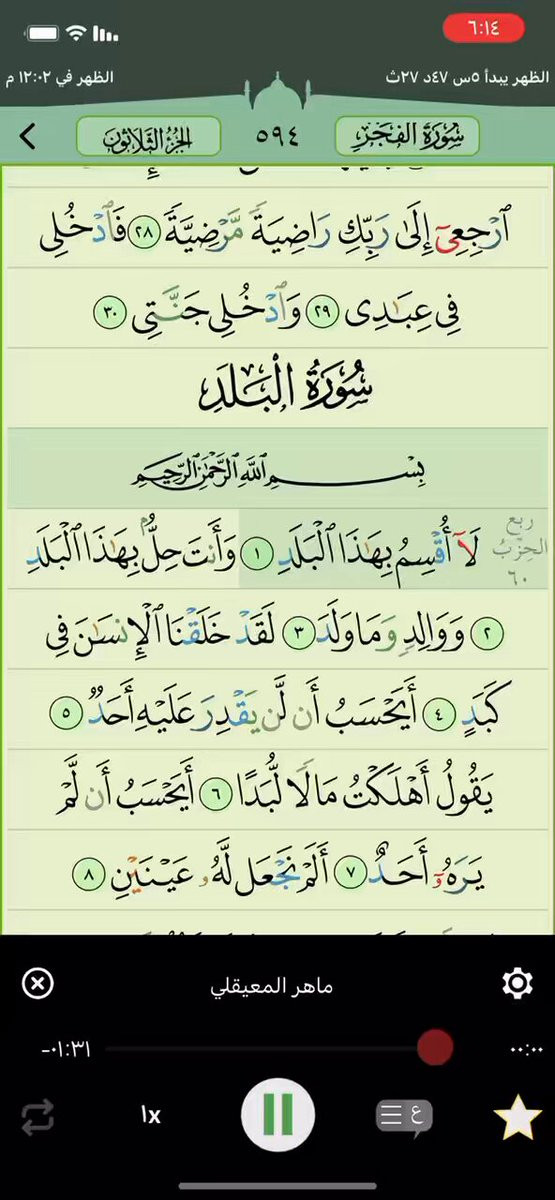 ٦:١٤
الظهر يبدأ ٥س ٤٧د ٢٧ث
الظهر في ١٢:٠٢ م
سُورَةُ الفَجْرِ
٥٩٤
الجُزْءُ الثَّلَاثُونَ
ٱرْجِعِىٓ إِلَىٰ رَبِّكِ رَاضِيَةً مَّرْضِيَّةً ٢٨ فَٱدْخُلِى
فِى عِبَٰدِى ٢٩ وَٱدْخُلِى جَنَّتِى ٣٠
سُورَةُ الْبَلَدِ
بِسْمِ ٱللَّهِ ٱلرَّحْمَٰنِ ٱلرَّحِيمِ
ربع الحِزْبُ ٦٠
لَآ أُقْسِمُ بِهَٰذَا ٱلْبَلَدِ ١ وَأَنتَ حِلٌّۢ بِهَٰذَا ٱلْبَلَدِ
٢ وَوَالِدٍ وَمَا وَلَدَ ٣ لَقَدْ خَلَقْنَا ٱلْإِنسَٰنَ فِى
كَبَدٍ ٤ أَيَحْسَبُ أَن لَّن يَقْدِرَ عَلَيْهِ أَحَدٌ ٥
يَقُولُ أَهْلَكْتُ مَالًا لُّبَدًا ٦ أَيَحْسَبُ أَن لَّمْ
يَرَهُۥٓ أَحَدٌ ٧ أَلَمْ نَجْعَل لَّهُۥ عَيْنَيْنِ ٨
ماهر المعيقلي
-٠١:٣١
٠٠:٠٠
١x
ع